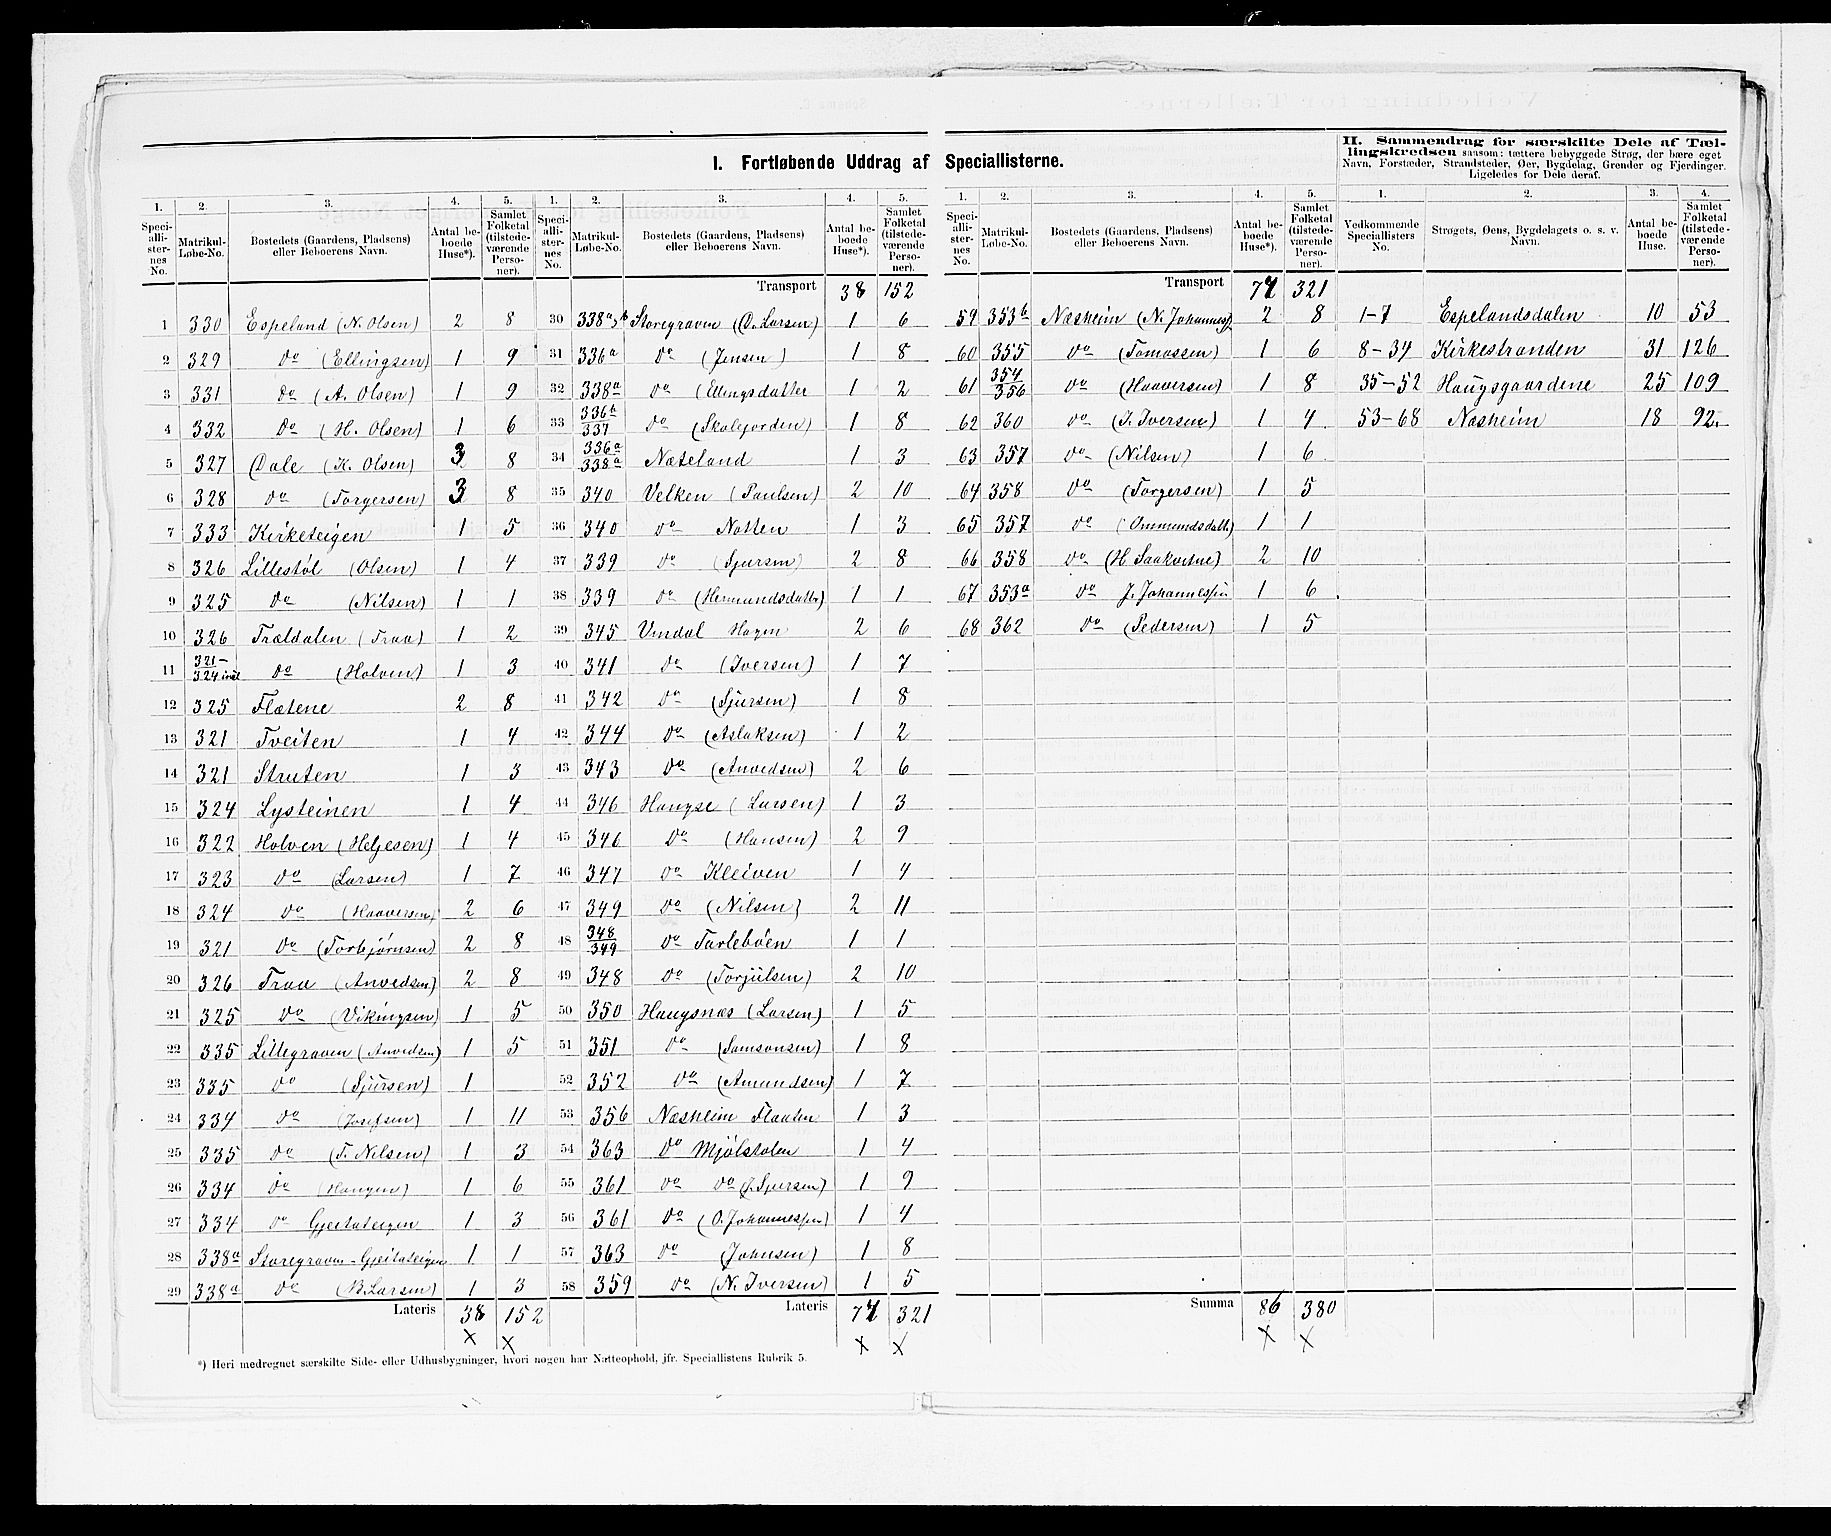 I. Fortløbende Uddrag af Speciallisterne.
II. Sammendrag for særskilte Dele af Tæl-
lingskredsen saasom: tættere bebyggede Strøg, der bære eget
Navn, Forstæder, Strandsteder, Øer, Bygdelag, Grender og Fjerdinger.
Ligeledes for Dele deraf.
1. Speciallisternes No. 2. Matrikul-Løbe-No. 3. Bostedets (Gaardens, Pladsens) eller Beboerens Navn. 4. Antal beboede Huse*). 5. Samlet Folketal (tilstedeværende Personer).
1 330 Espeland (N. Olsen) 2 8
2 329 Do (Ellingsen) 1 9
3 331 Do (A. Olsen) 1 9
4 332 Do (H. Olsen) 1 6
5 327 Dale (K. Olsen) 3 8
6 328 Do (Torgersen) 3 8
7 333 Kirketeigen 1 5
8 326 Lillestøl (Olsen) 1 4
9 325 Do (Nilsen) 1 1
10 326 Trældalen (Traa) 1 2
11 321-324 incl Do (Holven) 1 3
12 325 Flatene 2 8
13 321 Tveiten 1 4
14 321 Struten 1 3
15 324 Lysteinen 1 4
16 322 Holven (Heljesen) 1 4
17 323 Do (Larsen) 1 7
18 324 Do (Haaversen) 2 6
19 321 Do (Torbjørnsen) 2 8
20 326 Traa (Anvedsen) 2 8
21 325 Do (Vikingsen) 1 5
22 335 Lillegraven (Anvedsen) 1 5
23 335 Do (Sjursen) 1
24 334 Do (Josefsen) 1 11
25 335 Do (T. Nilsen) 1 3
26 334 Do (Haugen) 1 6
27 334 Do Gjeitateigen 1 3
28 338a Storegraven - Gjeitateigen 1 1
29 338a Do (B. Larsen) 1 3
Lateris 38 152
1. Speciallisternes No. 2. Matrikul-Løbe-No. 3. Bostedets (Gaardens, Pladsens) eller Beboerens Navn. 4. Antal beboede Huse*). 5. Samlet Folketal (tilstedeværende Personer).
Transport 38 152
30 338a,b Storegraven (O. Larsen) 1 6
31 336a Do (Jensen) 1 8
32 338a Do (Ellingsdatter 1 2
33 336b/337 Do (Skalefjorden) 1 8
34 336a/338a Næteland 1 3
35 340 Velken (Paulsen) 2 10
36 340 Do Notten 1 3
37 339 Do (Sjursen) 2 8
38 339 Do (Hermundsdatter) 1 1
39 345 Vindal Hagen 2 6
40 341 Do (Iversen) 1 7
41 342 Do (Sjursen) 1 8
42 344 Do (Aslaksen) 1 2
43 343 Do (Anvedsen) 2 6
44 346 Haugse (Larsen) 1 3
45 346 Do (Hansen) 2 9
46 347 Do Kleiven 1 4
47 349 Do (Nilsen) 2 11
48 348/349 Do Tarlebøen 1 1
49 348 Do (Torjulsen) 2 10
50 350 Haugsnæs (Larsen) 1 5
51 351 Do (Samsonsen) 1 8
52 352 Do (Amundsen) 1 7
53 356 Næsheim Flaaten 1 3
54 363 Do Mjølstølen 1 4
55 361 Do Do (J. Sjursen) 1 9
56 361 Do (O. Johannessen) 1 4
57 363 Do (Johnsen) 1 8
58 359 Do (N. Iversen) 1 5
Lateris 77 321
1. Speciallisternes No. 2. Matrikul-Løbe-No. 3. Bostedets (Gaardens, Pladsens) eller Beboerens Navn. 4. Antal beboede Huse*). 5. Samlet Folketal (tilstedeværende Personer).
Transport 77 321
59 353b Næsheim (N. Johanness) 2 8
60 355 Do (Tomassen) 1 6
61 354/356 Do (Haaversen) 1 8
62 360 Do (I. Iversen) 1 4
63 357 Do (Nilsen) 1 6
64 358 Do (Torgersen) 1 5
65 357 Do (Ommundsdatt.) 1 1
66 358 Do (H Saakvitne) 2 10
67 353a Do J. Johannessen 1 6
68 362 Do (Pedersen) 1 5
Summa 86 380
1. Vedkommende Speciallisters No. 2. Strøgets, Øens, Bygdelagets o. s. v. Navn. 3. Antal beboede Huse. 4. Samlet Folketal (tilstedeværende Personer).
1-7 Espelandsdalen 10 53
8-34 Kirkestranden 31 126
35-52 Haugsgaardene 25 109
53-68 Næsheim 18 92.
*) Heri medregnet særskilte Side- eller Udhusbygninger, hvori nogen har Natteophold, jfr. Speciallistens Rubrik 5.